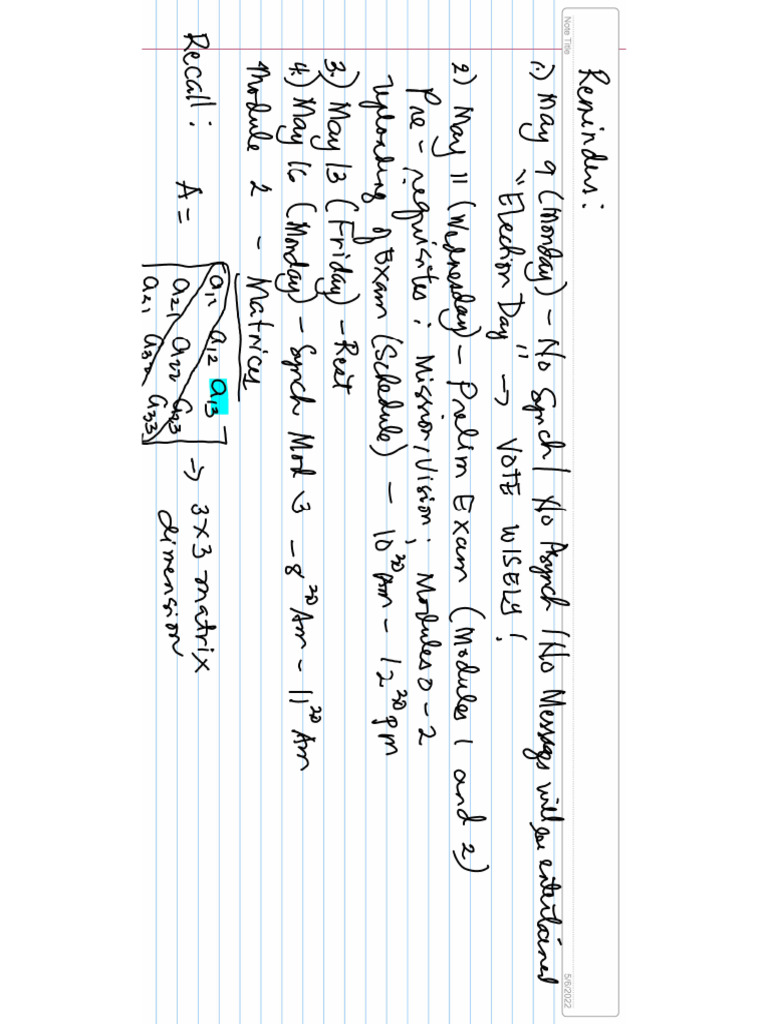 Note Title
5/6/2022
Reminders:
1.) May 9 (Monday) - No Synch / No Asynch / No Messages will be entertained
"Election Day" → VOTE WISELY!
2) May 11 (Wednesday) - Prelim Exam (Modules 1 and 2)
Pre-requisites: Mission, Vision; Modules 0-2
Uploading of Exam (Schedule) - 10:30 Am - 12:30 pm
3.) May 13 (Friday) - Rest
4.) May 16 (Monday) - Synch Mod 3 - 8:30 Am - 11:30 Am
Module 2 - Matrices
Recall: A = a11 a12 a13
a21 a22 a23 → 3x3 matrix
a31 a32 a33 dimension